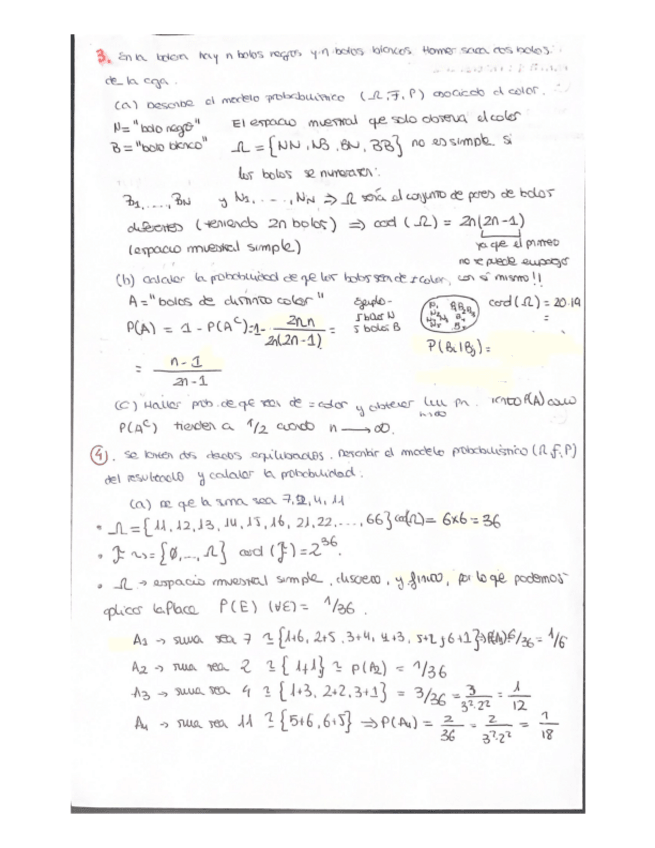 3. En la bolsa hay n bolas negras y n bolas blancas. Homer saca dos bolas
de la caja.
(a) Describe el modelo probabilístico (Ω, F, P) asociado al color.
N = "bola negra" El espacio muestral que solo observa el color
B = "bola blanca" Ω = {NN, NB, BN, BB} no es simple si
las bolas se numerasen:
B1, ..., BN y N1, ..., NN ⇒ Ω sería el conjunto de pares de bolas
diferentes (teniendo 2n bolas) ⇒ card (Ω) = 2n(2n-1)
(espacio muestral simple) ya que el primero
no se puede
con sí mismo!!
(b) calcular la probabilidad de que las bolas sean de color,
A = "bolas de distinto color" 5 bolas N card(Ω) = 20·19
P(A) = 1 - P(Aᶜ) = 1 - 2n.n / 2n(2n-1) = 5 bolas B
P(Bi|Bj) =
= n-1 / 2n-1
(c) Hallar prob. de que sean de = color y obtener lim n→∞ Pn. P(A) como
P(Aᶜ) tienden a 1/2 cuando n → ∞.
4. Se lanzan dos dados equilibrados. Describir el modelo probabilístico (Ω, F, P)
del resultado y calcular la probabilidad:
(a) De que la suma sea 7, 2, 4, 11
• Ω = {11, 12, 13, 14, 15, 16, 21, 22, ..., 66} card(Ω) = 6x6 = 36
• F = {∅, ..., Ω} card (F) = 2³⁶.
• Ω → espacio muestral simple, discreto, y finito, por lo que podemos
aplicar laPlace P(E) (∀E) = 1/36.
A1 → suma sea 7 ≅ {1+6, 2+5, 3+4, 4+3, 5+2, 6+1} ⇒ P(A1) = 6/36 = 1/6
A2 → suma sea 2 ≅ {1+1} ≅ P(A2) = 1/36
A3 → suma sea 4 ≅ {1+3, 2+2, 3+1} = 3/36 = 3 / 3²·2² = 1/12
A4 → suma sea 11 ≅ {5+6, 6+5} ⇒ P(A4) = 2/36 = 2 / 3²·2² = 1/18